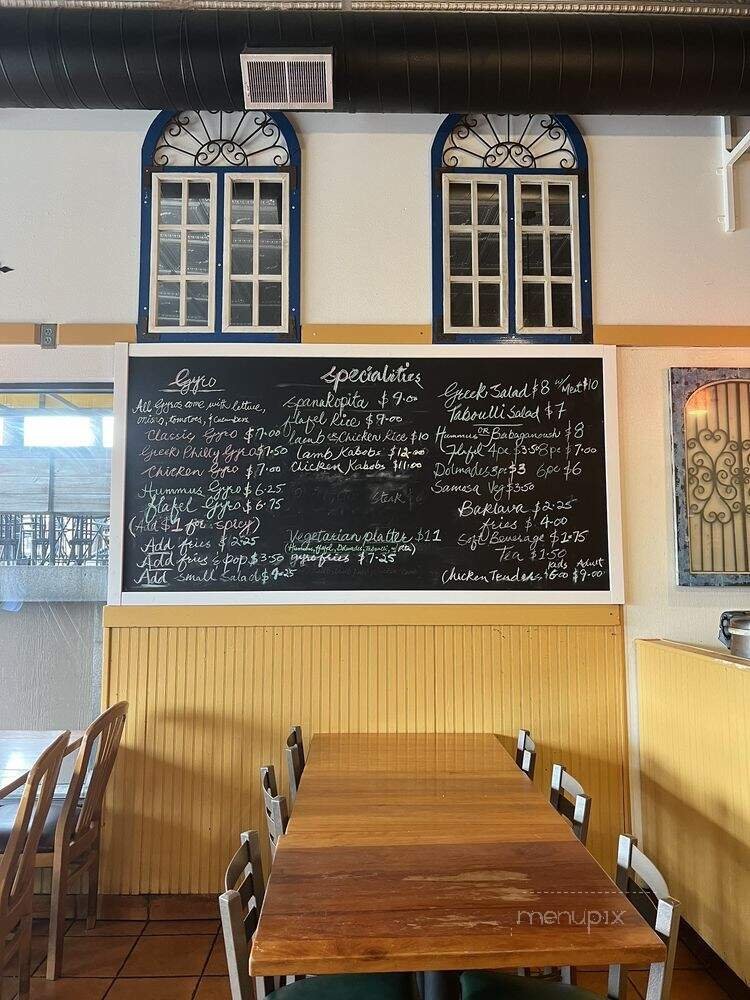 Gyro
All Gyros come with lettuce,
onions, tomatoes, & cucumbers
Classic Gyro $7.00
Greek Philly Gyro $7.50
Chicken Gyro $7.00
Hummus Gyro $6.25
flafel Gyro $6.75
(Add $1 for spicy)
Add fries $2.25
Add fries & pop $3.50
Add small Salad $4.25
Specialities
Spanakopita $9.00
flafel Rice $9.00
lamb or Chicken Rice $10
lamb Kabobs $12.00
Chicken Kabobs $11.00
Steak
Vegetarian platter $11
(Hummus, flafel, Dolmades, Tabouli, w/ Pita)
gyro fries $7.25
Greek Salad $8 w/ Meat $10
Taboulli Salad $7
Hummus OR Babaganoush $8
Flafel 4pc $3.50 8pc $7.00
Dolmades 3pc $3 6pc $6
Samosa Veg $3.50
Baklava $2.25
fries $4.00
Soft Beverage $1.75
Tea $1.50
Kids Adult
Chicken Tenders $6.00 $9.00
menupix